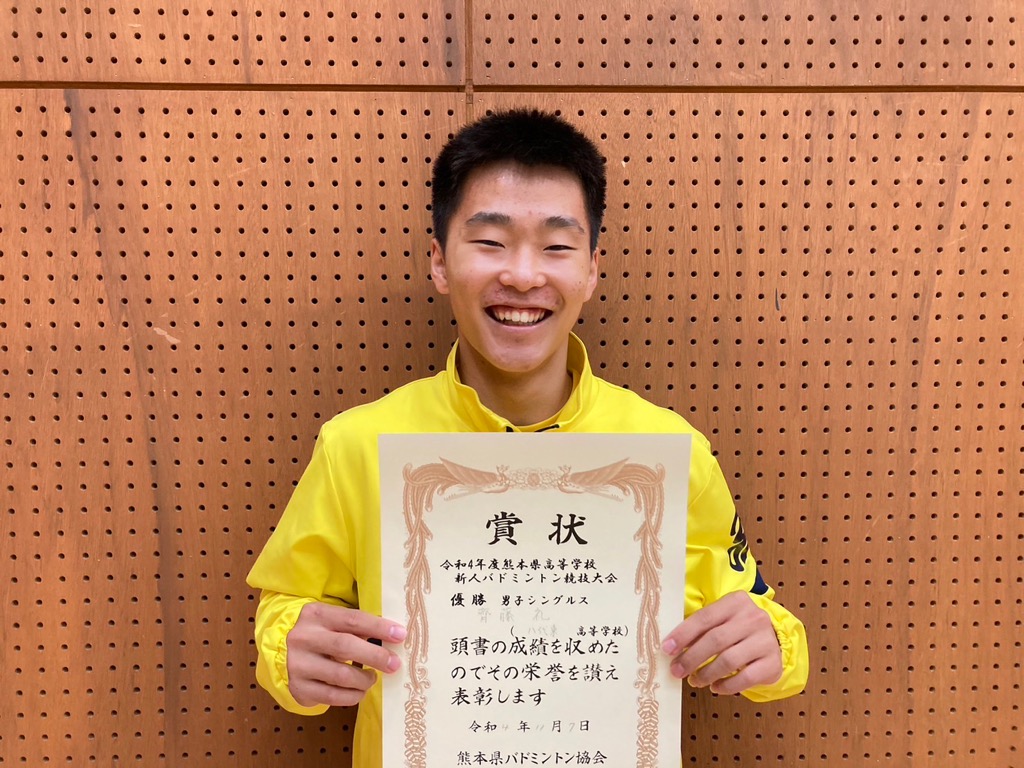 賞状
令和4年度熊本県高等学校
新人バドミントン競技大会
優勝 男子シングルス
齊藤 礼
(八代東 高等学校)
頭書の成績を収めた
のでその栄誉を讃え
表彰します
令和4年11月7日
熊本県バドミントン協会